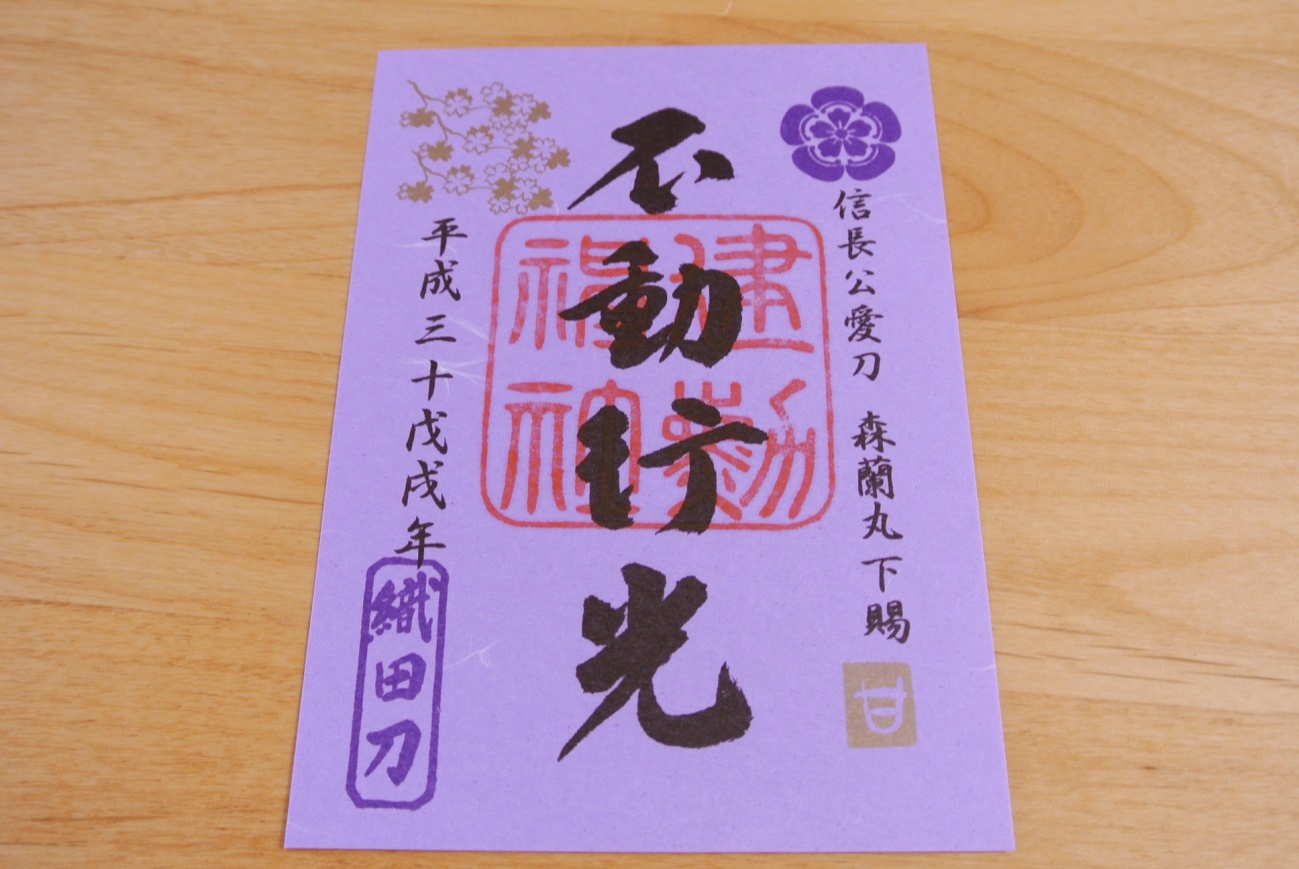 信長公愛刀 森蘭丸下賜
甘
不動行光
建勲
福神
平成三十戊戌年
織田刀